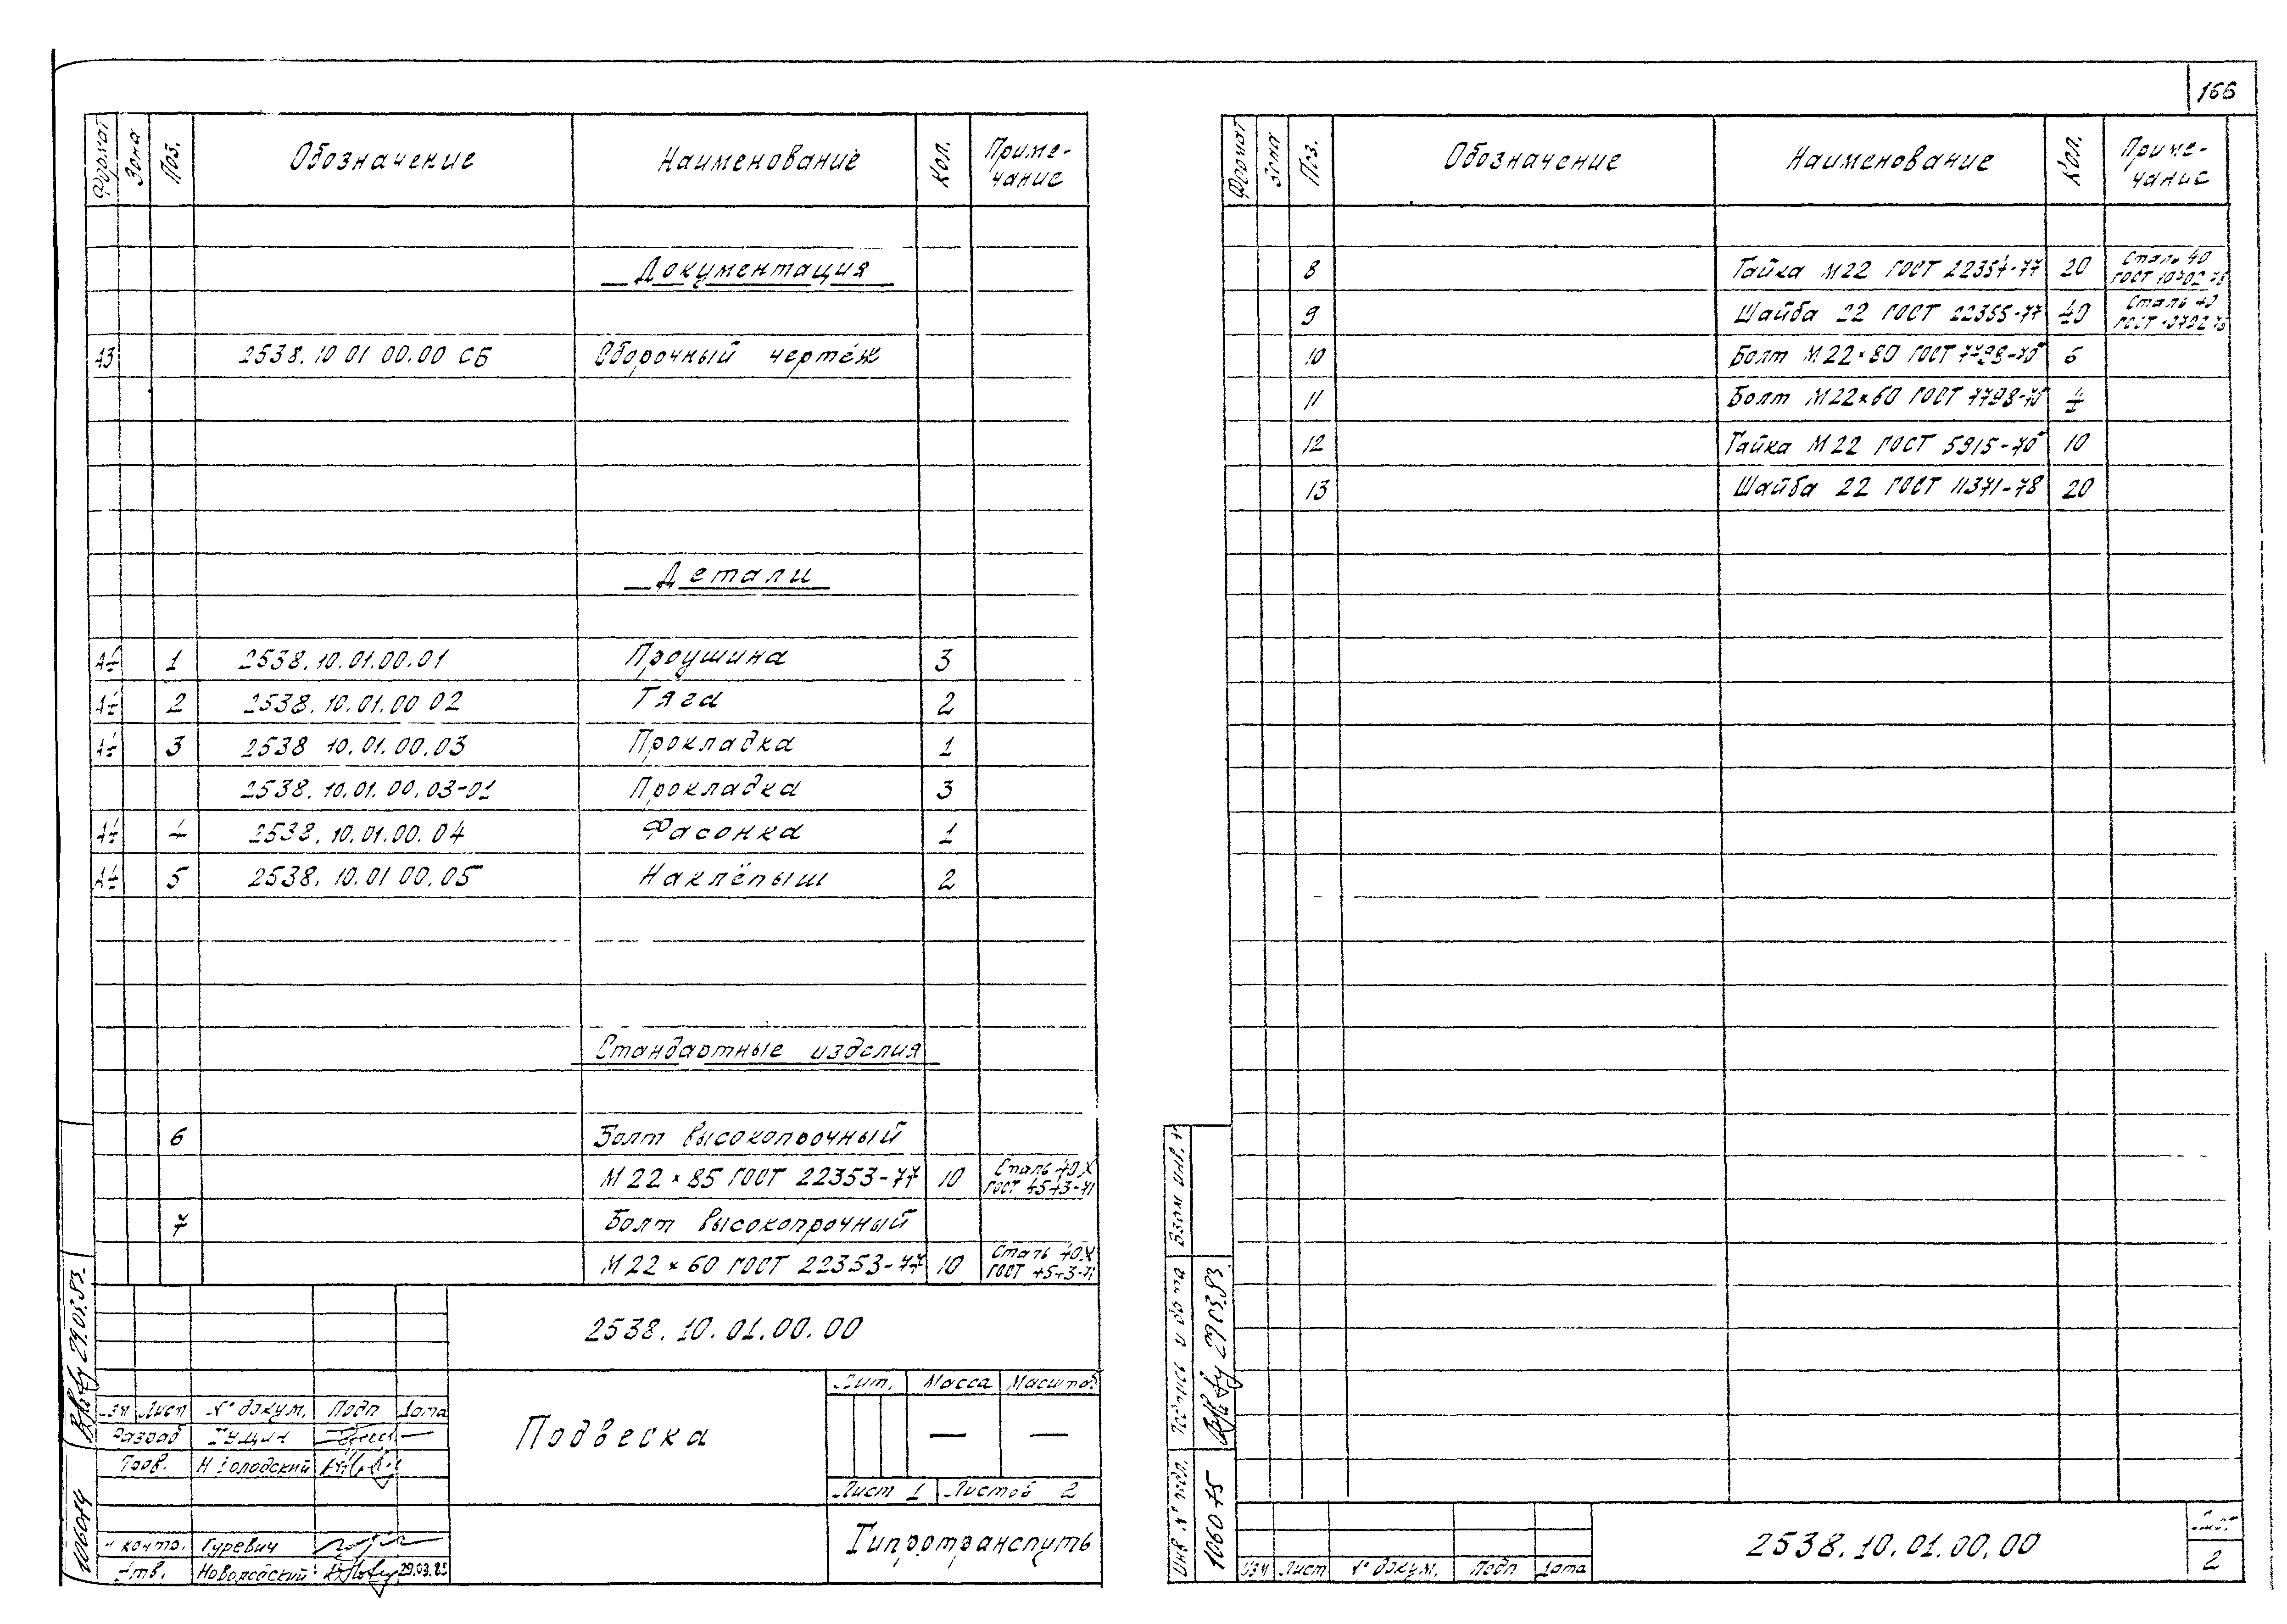 166
Формат Зона Поз. Обозначение Наименование Кол. Приме-
чание
Документация
А3 2538.10 01 00.00 СБ Сборочный чертёж
Детали
А4 1 2538.10.01.00.01 Проушина 3
А4 2 2538.10.01.00 02 Тяга 2
А4 3 2538 10.01.00.03 Прокладка 1
2538.10.01.00.03-01 Прокладка 3
А4 4 2538.10.01.00.04 Фасонка 1
А4 5 2538.10.01 00.05 Наклёпыш 2
Стандартные изделия
6 Болт высокопрочный
М22×85 ГОСТ 22353-77 10 Сталь 40Х
ГОСТ 4543-71
7 Болт высокопрочный
М22×60 ГОСТ 22353-77 10 Сталь 40Х
ГОСТ 4543-71
2538.10.01.00.00
Изм Лист № докум. Подп Дата
Разраб Гущин
Пров.
Н контр. Гуревич
Утв. 29.03.83
Подвеска
Лит. Масса Масштаб
— —
Лист 1 Листов 2
Гипротранспуть
29.03.83.
106014
Формат Зона Поз. Обозначение Наименование Кол. Приме-
чание
8 Гайка М22 ГОСТ 22354-77 20 Сталь 40
ГОСТ 10702-78
9 Шайба 22 ГОСТ 22355-77 40 Сталь 40
ГОСТ 10702-78
10 Болт М22×80 ГОСТ 7798-70* 6
11 Болт М22×60 ГОСТ 7798-70* 4
12 Гайка М22 ГОСТ 5915-70* 10
13 Шайба 22 ГОСТ 11371-78 20
Взам инв. №
Подпись и дата 29 03.83.
Инв № подл.
Изм Лист № докум. Подп Дата
2538.10.01.00.00
Лист
2